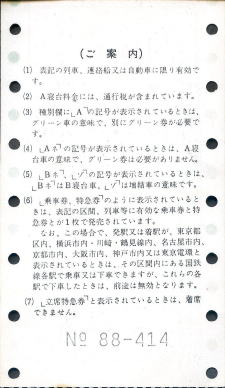 (ご案内)
(1) 表記の列車、連絡船又は自動車に限り有効で
す。
(2) A寝台料金には、通行税が含まれています。
(3) 種別欄に「A」の記号が表示されているときは、
グリーン車の意味で、別にグリーン券が必要で
す。
(4) 「Aネ」の記号が表示されているときは、A寝
台車の意味で、グリーン券は必要がありません。
(5) 「Bネ」、「ゾ」の記号が表示されているときは、
「Bネ」はB寝台車、「ゾ」は増結車の意味です。
(6) 「乗車券、特急券」のように表示されていると
きは、表記の区間、列車等に有効な乗車券と特
急券とが1枚で発売されています。
なお、この場合で、発駅又は着駅が、東京都
区内、横浜市内・川崎・鶴見線内、名古屋市内、
京都市内、大阪市内、神戸市内又は東京電環と
表示されているときは、その区間内にある国鉄
線各駅で乗車又は下車できますが、これらの各
駅で下車したときは、前途は無効となります。
(7) 「立席特急券」と表示されているときは、着席
できません。
№ 88-414